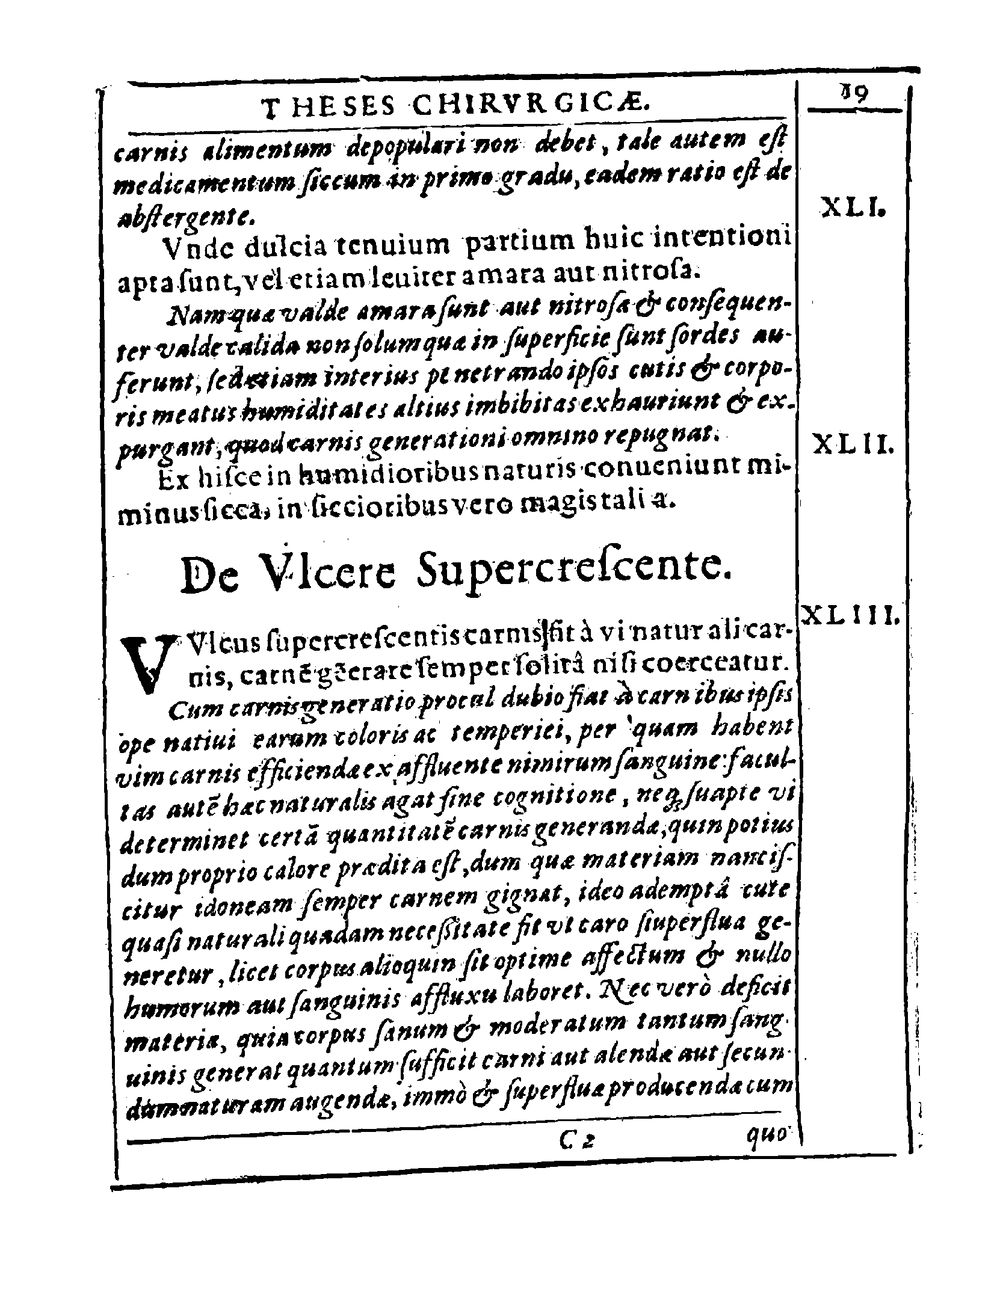 THESES CHIRVRGICÆ.
19
carnis alimentum depopulari non debet, tale autem eſt
medicamentum ſiccum in primo gradu, eadem ratio eſt de
abſtergente.
XLI.
Vnde dulcia tenuium partium huic intentioni
apta ſunt, vel etiam leuiter amara aut nitroſa.
Nam quæ valde amara ſunt aut nitroſa & conſequen-
ter valde calida non ſolum quæ in ſuperficie ſunt ſordes au-
ferunt, ſed etiam interius penetrando ipſos cutis & corpo-
ris meatus humiditates altius imbibitas exhauriunt & ex-
purgant, quod carnis generationi omnino repugnat.
XLII.
Ex hiſce in humidioribus naturis conueniunt mi-
minus ſicca, in ſiccioribus vero magis talia.
De Vlcere Supercreſcente.
XLIII.
VVlcus ſupercreſcentis carnis fit à vi naturali car-
nis, carnē gēerare ſemper ſolitâ niſi coerceatur.
Cum carnis generatio procul dubio fiat à carnibus ipſis
ope natiui earum coloris ac temperiei, per quam habent
vim carnis efficiendæ ex affluente nimirum ſanguine: facul-
tas autē hæc naturalis agat ſine cognitione, neq; ſuapte vi
determinet certā quantitatē carnis generandæ, quin potius
dum proprio calore prædita eſt, dum quæ materiam nanciſ-
citur idoneam ſemper carnem gignat, ideo ademptâ cute
quaſi naturali quadam neceſſitate fit vt caro ſiuperflua ge-
neretur, licet corpus alioquin ſit optime affectum & nullo
humorum aut ſanguinis affluxu laboret. Nec verò deficit
materia, quia corpus ſanum & moderatum tantum ſang-
uinis generat quantum ſufficit carni aut alendæ aut ſecun-
dum naturam augendæ, immò & ſuperfluæ producendæ cum
C 2
quo